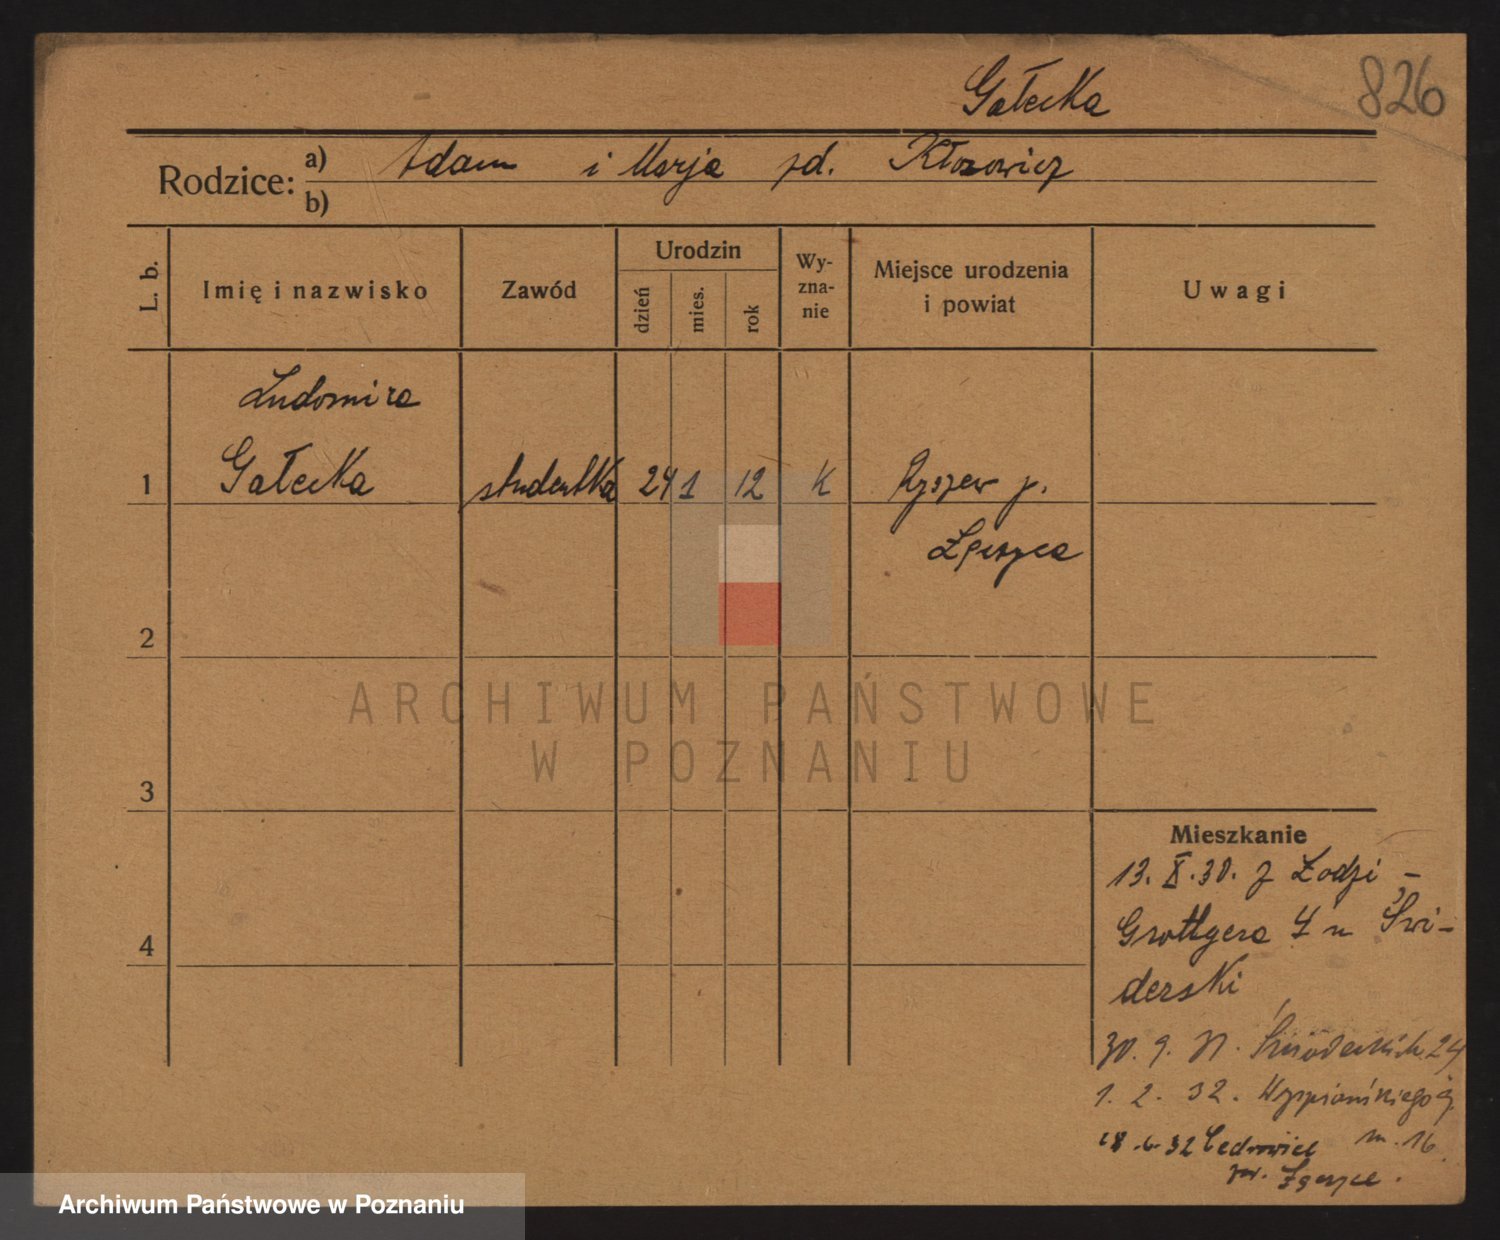 Gałecka
826
Rodzice: a) Adam i Marja zd. Kłossowicz
b)
L. b.
Imię i nazwisko
Zawód
Urodzin
dzień
mies.
rok
Wy-
zna-
nie
Miejsce urodzenia
i powiat
Uwagi
Ludomira
1 Gałecka studentka 24 1 12 K Ryszew p.
2
3
4
ARCHIWUM PAŃSTWOWE
W POZNANIU
Mieszkanie
13. X. 30. z Łodzi –
Grottgera 4 u Świ-
derski
30. 9. 31. Śniadeckich 24
1. 2. 32. Wyspiańskiego
m. 16
18.6.32
pow.
Archiwum Państwowe w Poznaniu